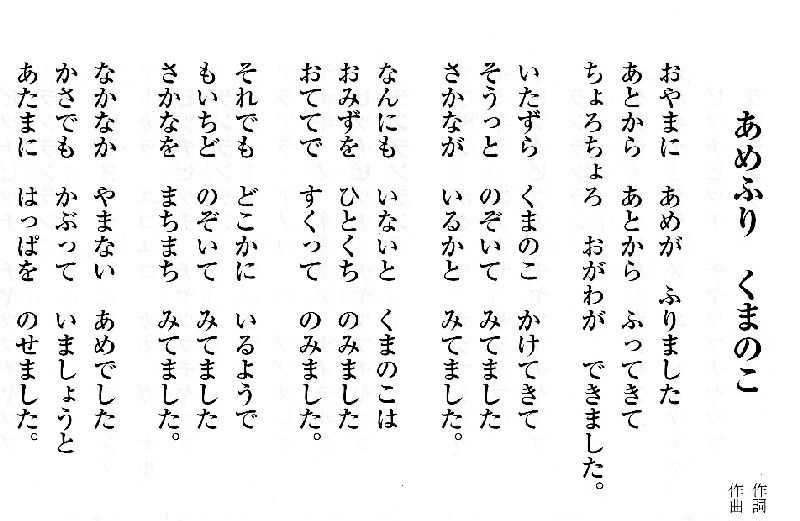 あめふり　くまのこ
作詞
作曲
おやまに　あめが　ふりました
あとから　あとから　ふってきて
ちょろちょろ　おがわが　できました。
いたずら　くまのこ　かけてきて
そうっと　のぞいて　みてました
さかなが　いるかと　みてました。
なんにも　いないと　くまのこは
おみずを　ひとくち　のみました
おててで　すくって　のみました。
それでも　どこかに　いるようで
もいちど　のぞいて　みてました
さかなを　まちまち　みてました。
なかなか　やまない　あめでした
かさでも　かぶって　いましょうと
あたまに　はっぱを　のせました。